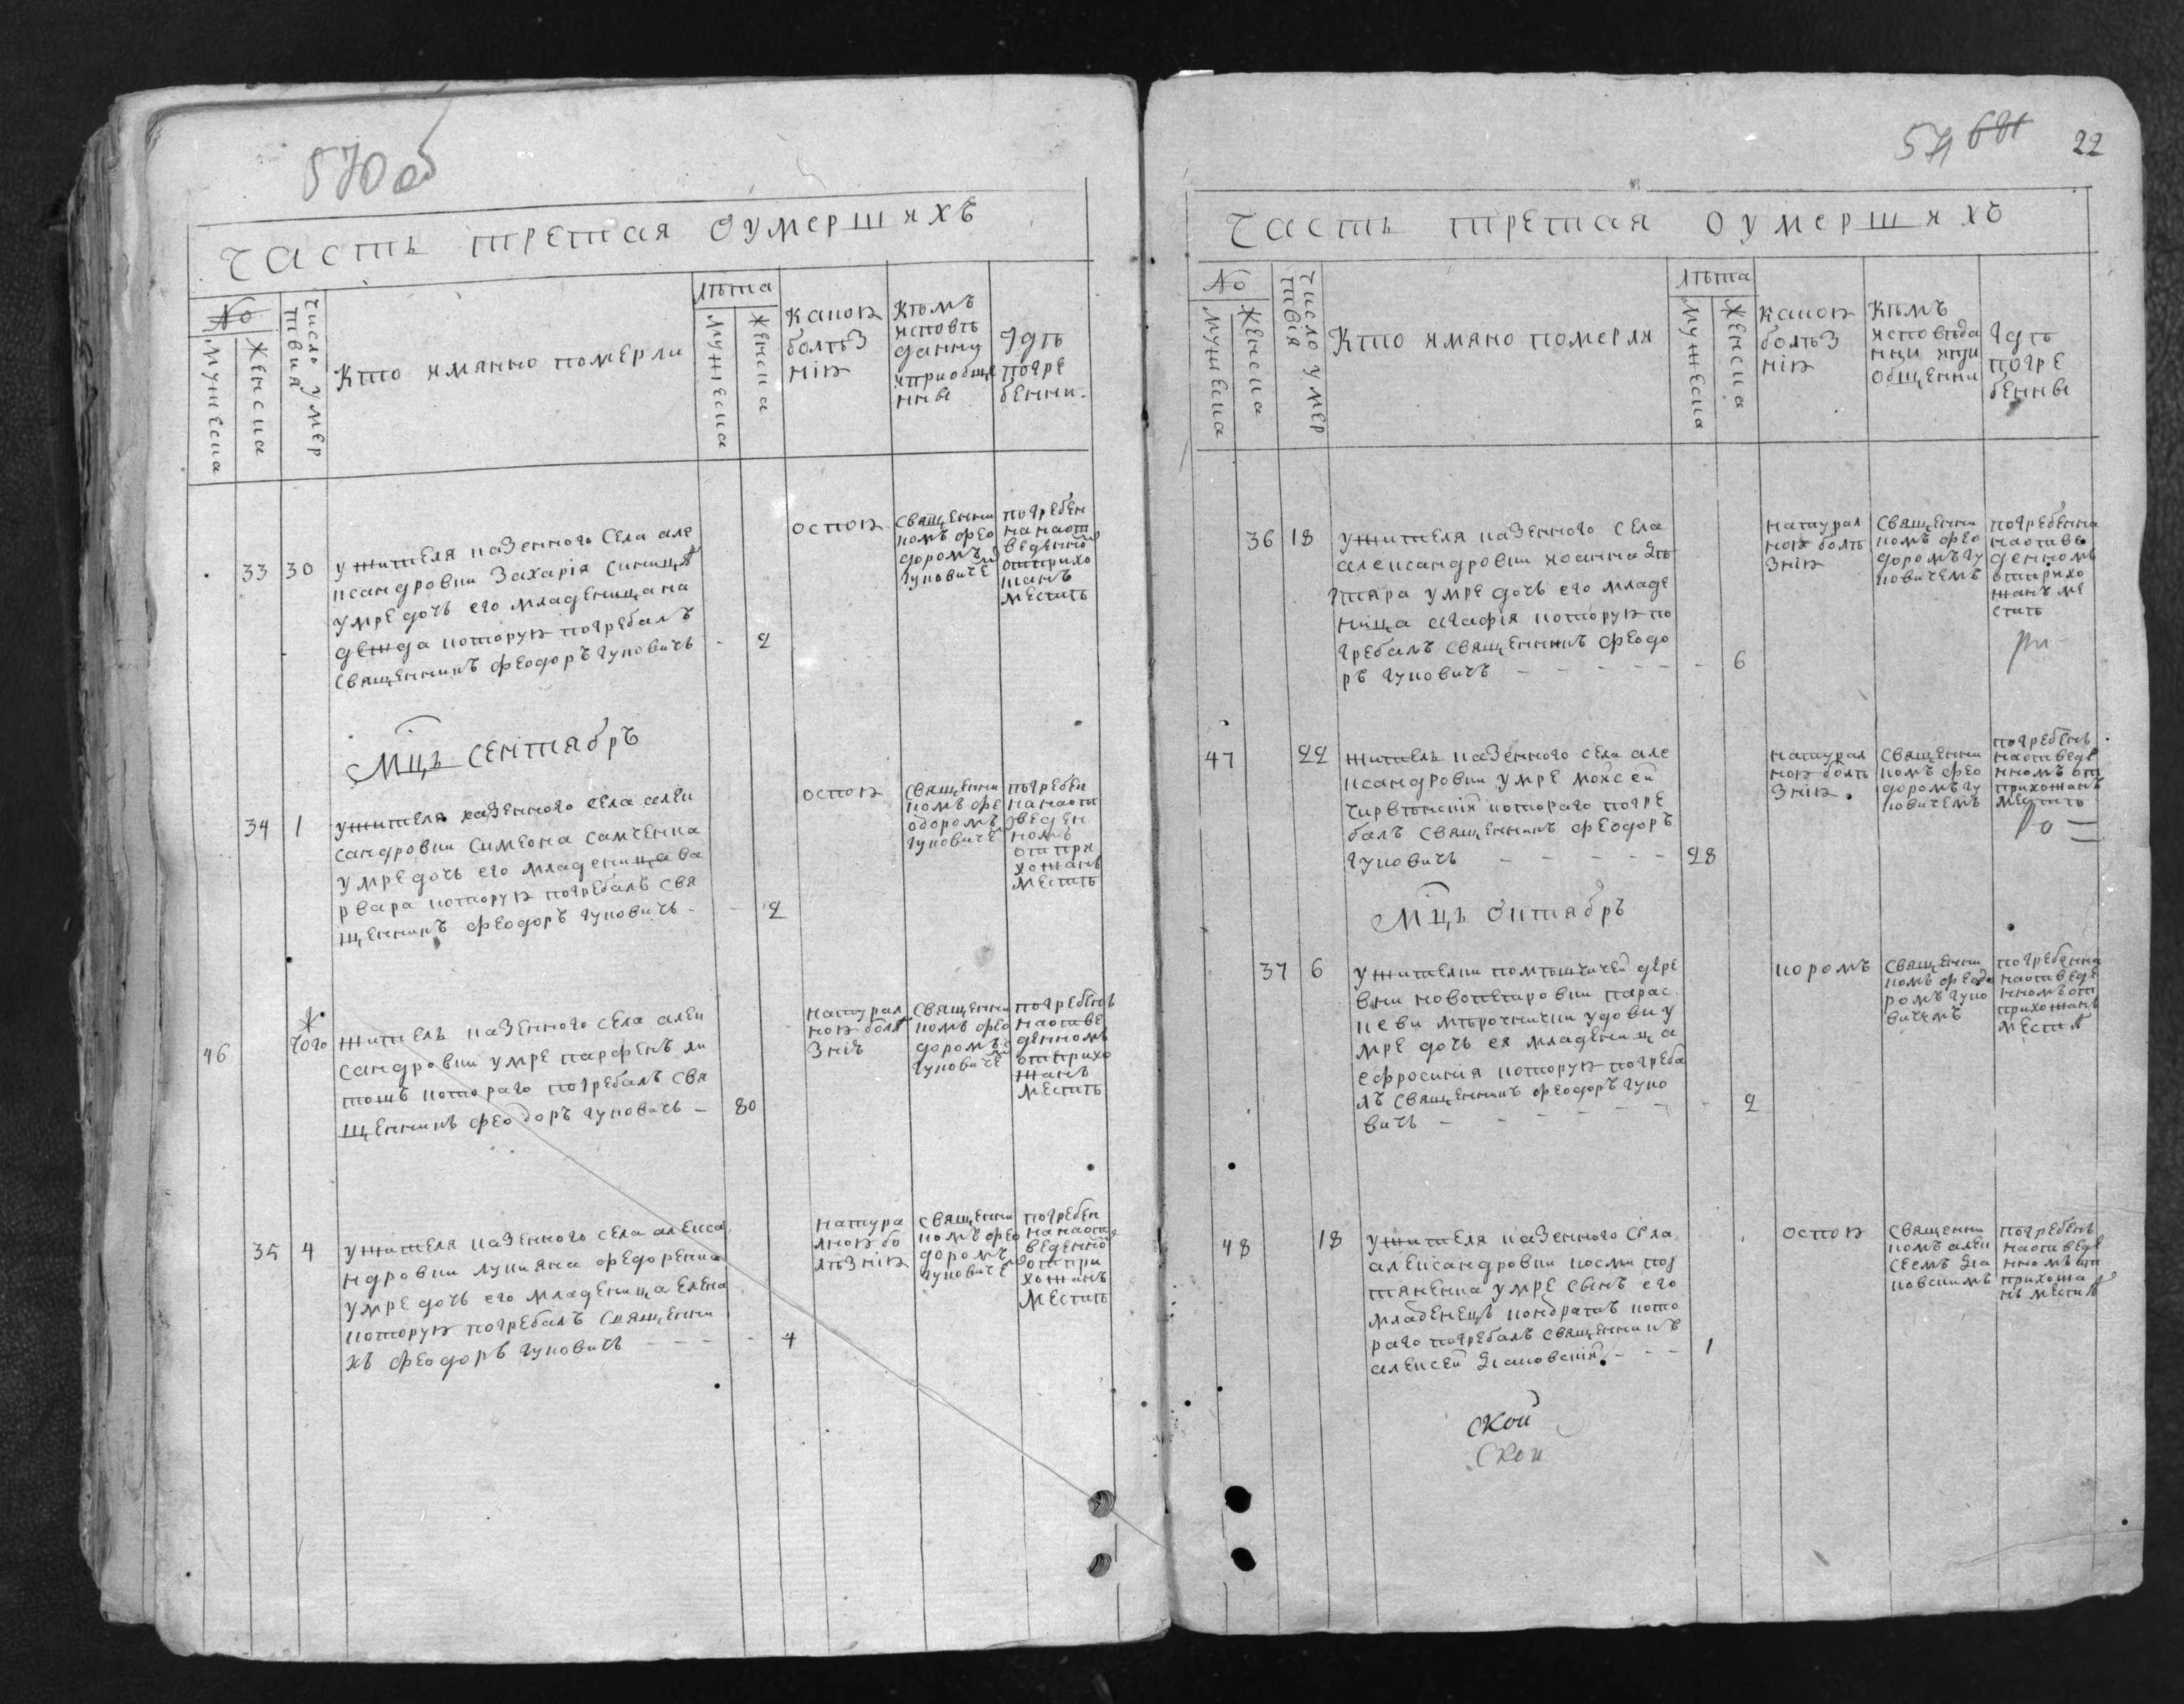 570 об
Часть третая о умершихъ
No
мужеска
женска
число умер
твия
Кто имянно померли
лѣта
мужеска
женска
какою
болѣз
нію
Кѣмъ
исповѣ
данны
и приобще
нны
Гдѣ
погре
бенны.
33
30
у жителя казенного села але
ксандровки Захарія Синицѣ
умре дочь его младенища на
дежда которую погребалъ
священникъ феодоръ гуковичь
2
оспою
священни
комъ фео
доромъ
гуковиче
погребен
на на от
веденно
от прихо
жанъ
местѣ
Мцъ сентябръ
34
1
у жителя казенного села алек
сандровки Симеона Самченка
умре дочь его младенища ва
рвара которую погребалъ свя
щенникъ феодоръ гуковичь
2
оспою
священни
комъ фе
одоромъ
гуковиче
погребен
на на от
веден
номъ
от при
хожанъ
местѣ
46
того
житель казенного села алек
сандровки умре парфенъ ли
тошъ котораго погребалъ свя
щенникъ феодоръ гуковичь
80
натурал
ною болѣ
знію
священни
комъ фео
доромъ
гуковиче
погребенъ
на отве
денномъ
от прихо
жанъ
местѣ
35
4
у жителя казенного села алекса
ндровки лукияна федоренка
умре дочь его младенища елена
которую погребалъ священни
къ феодоръ гуковичь
4
натура
лною бо
лѣзнію
священни
комъ фео
доромъ
гуковиче
погребен
на на от
веденно
от при
хожанъ
местѣ
571
22
Часть третая о умершихъ
No
мужеска
женска
число умер
твія
Кто имяно померли
лѣта
мужеска
женска
какою
болѣз
нію
Кѣмъ
исповѣда
нни и при
общенны
Гдѣ
погре
бенны
36
18
у жителя казенного села
александровки иоанна
умре дочь его младе
нища агафія которую по
гребалъ священникъ феодо
ръ гуковичь
6
натурал
ною болѣ
знію
священни
комъ фео
доромъ гу
ковичемъ
погребенна
на отве
денномъ
от прихо
жанъ ме
стѣ
47
22
житель казенного села але
ксандровки умре моисей
котораго погре
балъ священникъ феодоръ
гуковичь
28
натурал
ною болѣ
знію
священни
комъ фео
доромъ гу
ковичемъ
погребенъ
на отведе
нномъ от
прихожанъ
местѣ
Мцъ октябръ
37
6
у жителки помѣщичей дере
вни новопетровки парас
кеви мѣрочнички удови у
мре дочь ея младенища
ефросинія которую погреба
лъ священникъ феодоръ гуко
вичь
2
коромъ
священни
комъ феодо
ромъ гуко
вичемъ
погребенна
на отведе
нномъ от
прихожанъ
местѣ
48
18
у жителя казенного села
александровки косми
умре сынъ его
младенецъ кондратъ кото
раго погребалъ священникъ
алексей
1
оспою
священни
комъ алек
сеемъ
погребенъ
на отведе
нномъ от
прихожа
нъ местѣ
ской
ской